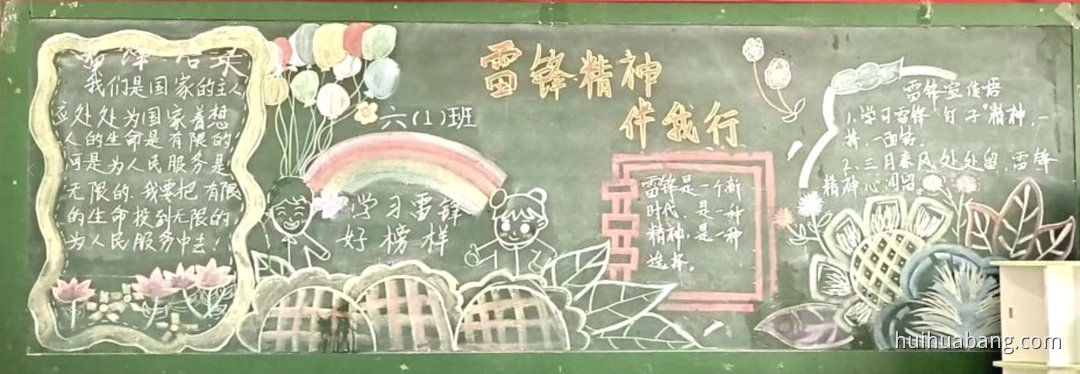 雷锋名录
我们是国家的主人
应处处为国家着想
人的生命是有限的
可是为人民服务是
无限的.我要把有限
的生命投到无限的,
为人民服务中去!
六(1)班
学习雷锋
好榜样
雷锋精神
伴我行
雷锋是一个新
时代,是一种
精神,是一种
选择。
雷锋宣传语
1.学习雷锋"钉子"精神,一
2.三月春风处处留,雷锋
精神心间留
huihuabang.com